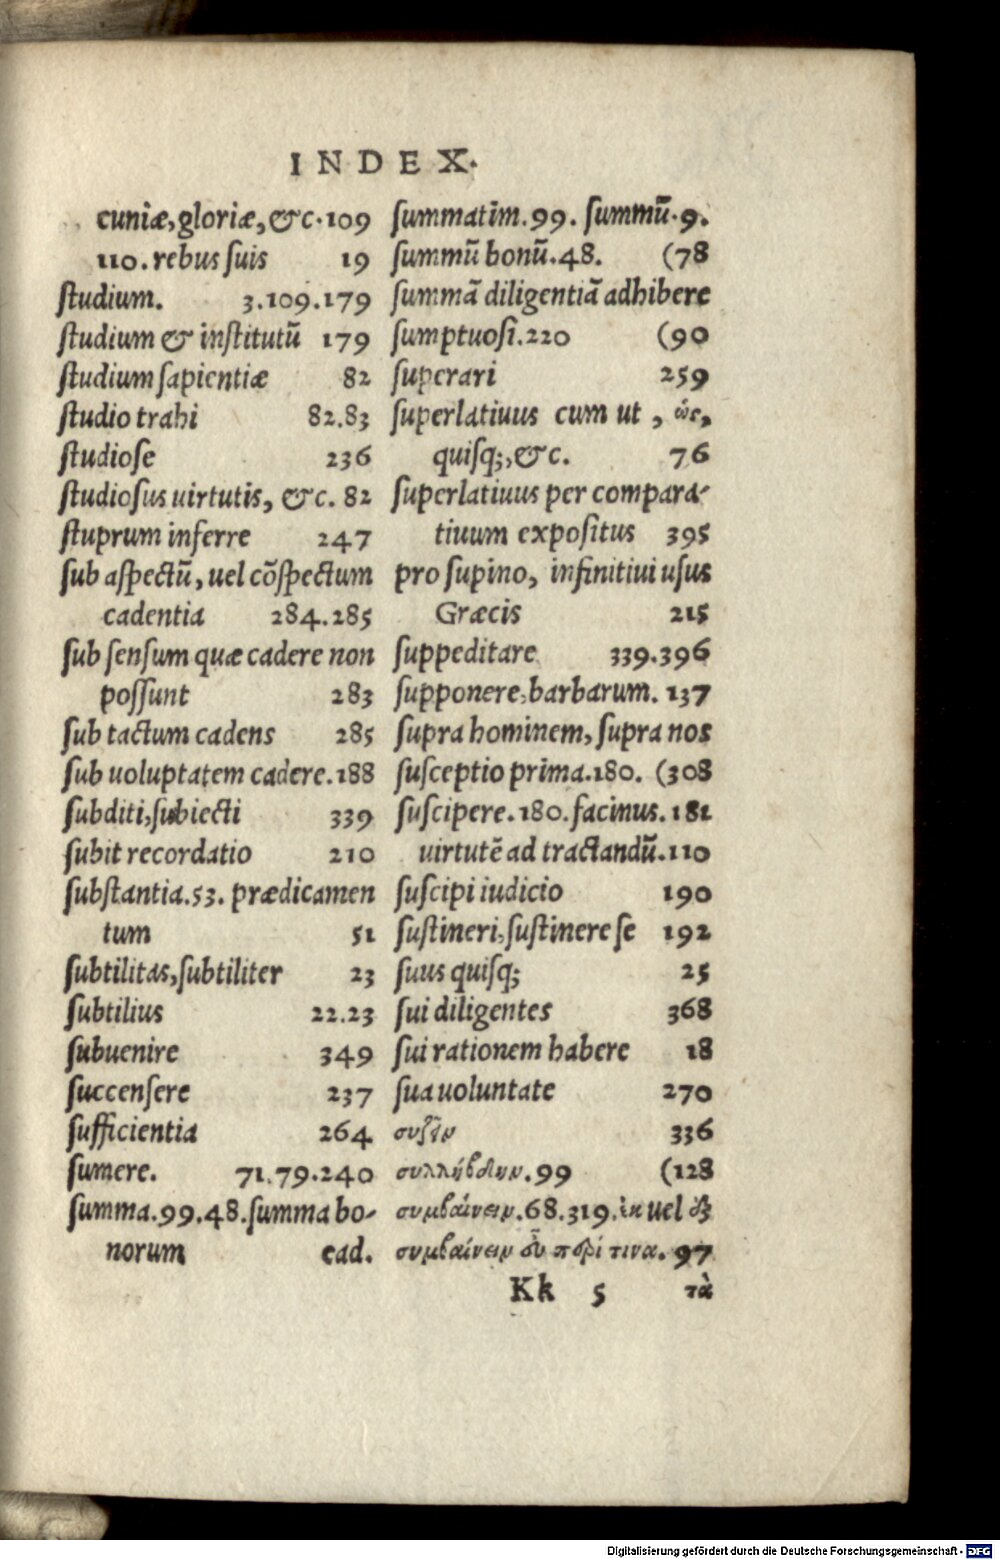 INDEX.
cuniæ, gloriæ, &c. 109
110. rebus suis 19
studium. 3.109.179
studium & institutū 179
studium sapientiæ 82
studio trahi 82.83
studiose 236
studiosus uirtutis, &c. 82
stuprum inferre 247
sub aspectū, uel cōspectum
cadentia 284.285
sub sensum quæ cadere non
possunt 283
sub tactum cadens 285
sub uoluptatem cadere. 188
subditi, subiecti 339
subit recordatio 210
substantia. 53. prædicamen
tum 51
subtilitas, subtiliter 23
subtilius 22.23
subuenire 349
succensere 237
sufficientia 264
sumere. 71.79.240
summa. 99.48. summa bo-
norum ead.
summatim. 99. summū. 9.
summū bonū. 48. (78
summā diligentiā adhibere
sumptuosi. 220 (90
superari 259
superlatiuus cum ut, ὡς,
quisq;, &c. 76
superlatiuus per compara-
tiuum expositus 395
pro supino, infinitiui usus
Græcis 215
suppeditare 339.396
supponere, barbarum. 137
supra hominem, supra nos
susceptio prima. 180. (308
suscipere. 180. facinus. 181
uirtutē ad tractandū. 110
suscipi iudicio 190
sustineri, sustinere se 192
suus quisq; 25
sui diligentes 368
sui rationem habere 18
sua uoluntate 270
συζῆν 336
συλλήβδην. 99 (128
συμβαίνειν. 68.319. ἐκ uel ἐξ
συμβαίνειν εὖ περί τινα. 97
Kk 5 τὰ
Digitalisierung gefördert durch die Deutsche Forschungsgemeinschaft - DFG